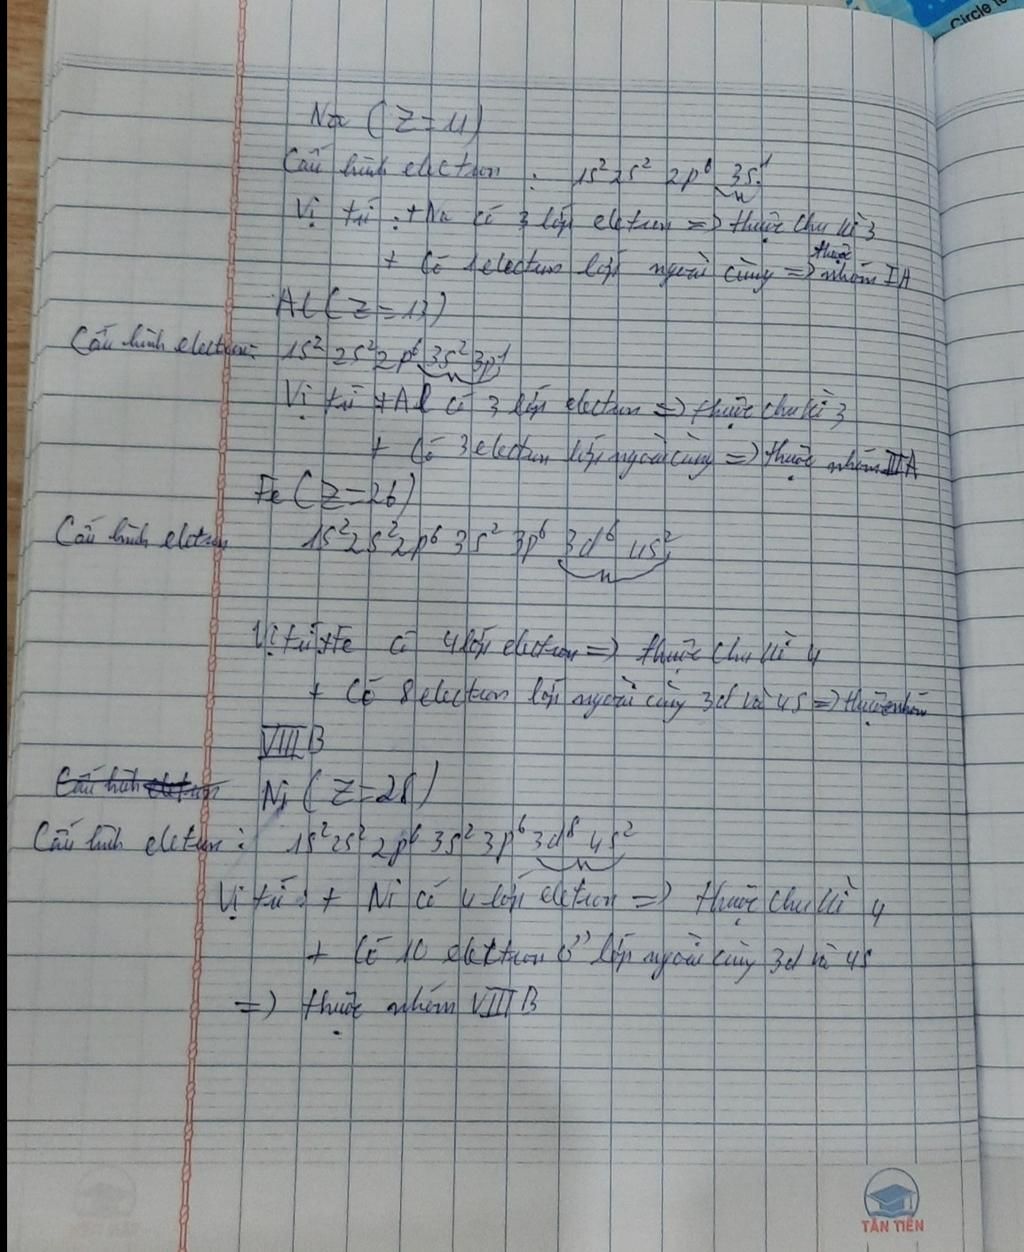 Circle to
Na (Z=11)
Cấu hình electron : 1s² 2s² 2p⁶ 3s¹
Vị trí : + Na có 3 lớp eletron => thuộc chu kì 3
+ Có 1electron lớp ngoài cùng => thuộc nhóm IA
Al (Z=13)
Cấu hình electron: 1s² 2s² 2p⁶ 3s² 3p¹
Vị trí + Al có 3 lớp electron => thuộc chu kì 3
+ Có 3 electron lớp ngoài cùng => thuộc nhóm IIIA
Fe (Z=26)
Cấu hình eletron 1s² 2s² 2p⁶ 3s² 3p⁶ 3d⁶ 4s²
Vị trí + Fe có 4 lớp electron => thuộc chu kì 4
+ Có 8 electron lớp ngoài cùng 3d và 4s => thuộc nhóm
VIII B
Ni (Z=28)
Cấu hình eletron : 1s² 2s² 2p⁶ 3s² 3p⁶ 3d⁸ 4s²
Vị trí : + Ni có 4 lớp eletron => thuộc chu kì 4
+ Có 10 electron ở lớp ngoài cùng 3d và 4s
=> thuộc nhóm VIII B
TÂN TIẾN